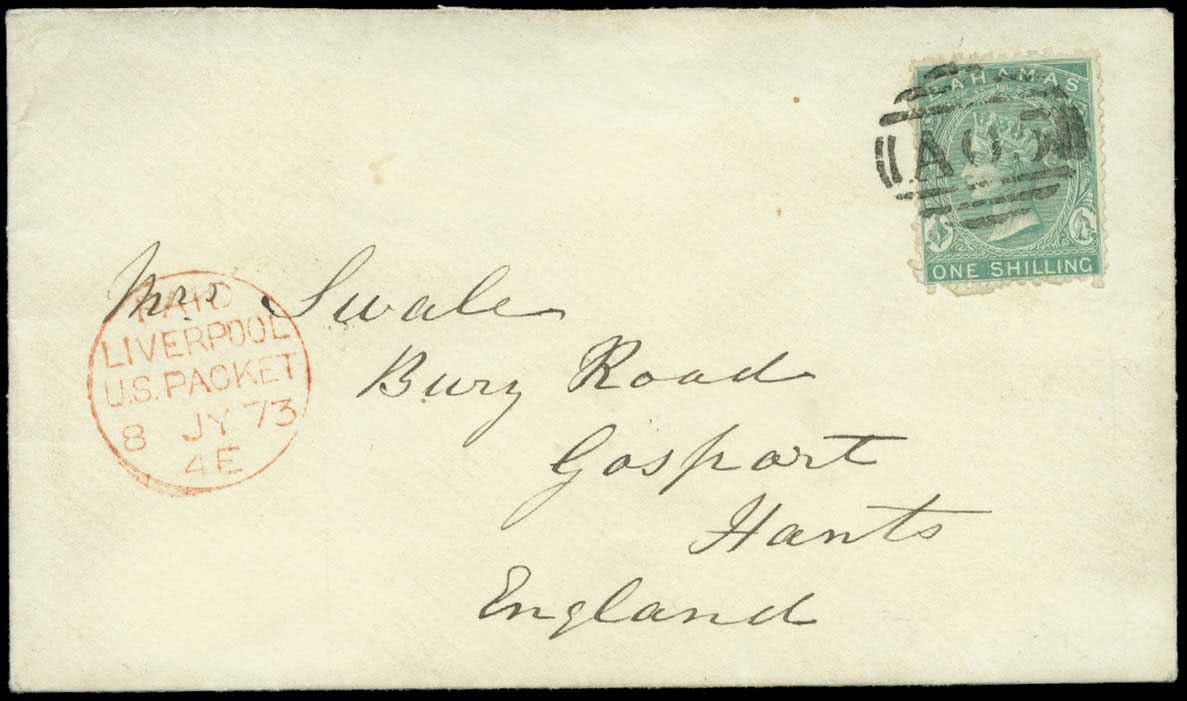 BAHAMAS
A05
ONE SHILLING
Mrs Swale
Bury Road
Gosport
Hants
England
PAID
LIVERPOOL
U.S. PACKET
8 JY 73
4E